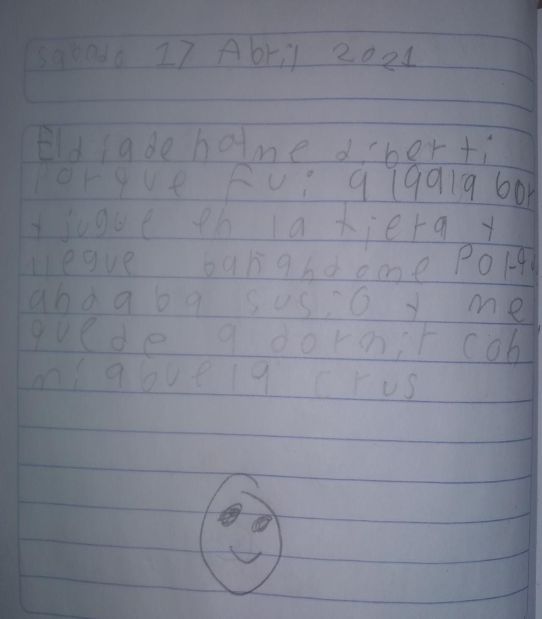 sabado 17 Abril 2021
El diade hoI me diberti
Porque Fui a la labor
y jugue en la tiera y
llegue bañandome Porq
andaba susio y me
quede a dormir con
mi abuela crus